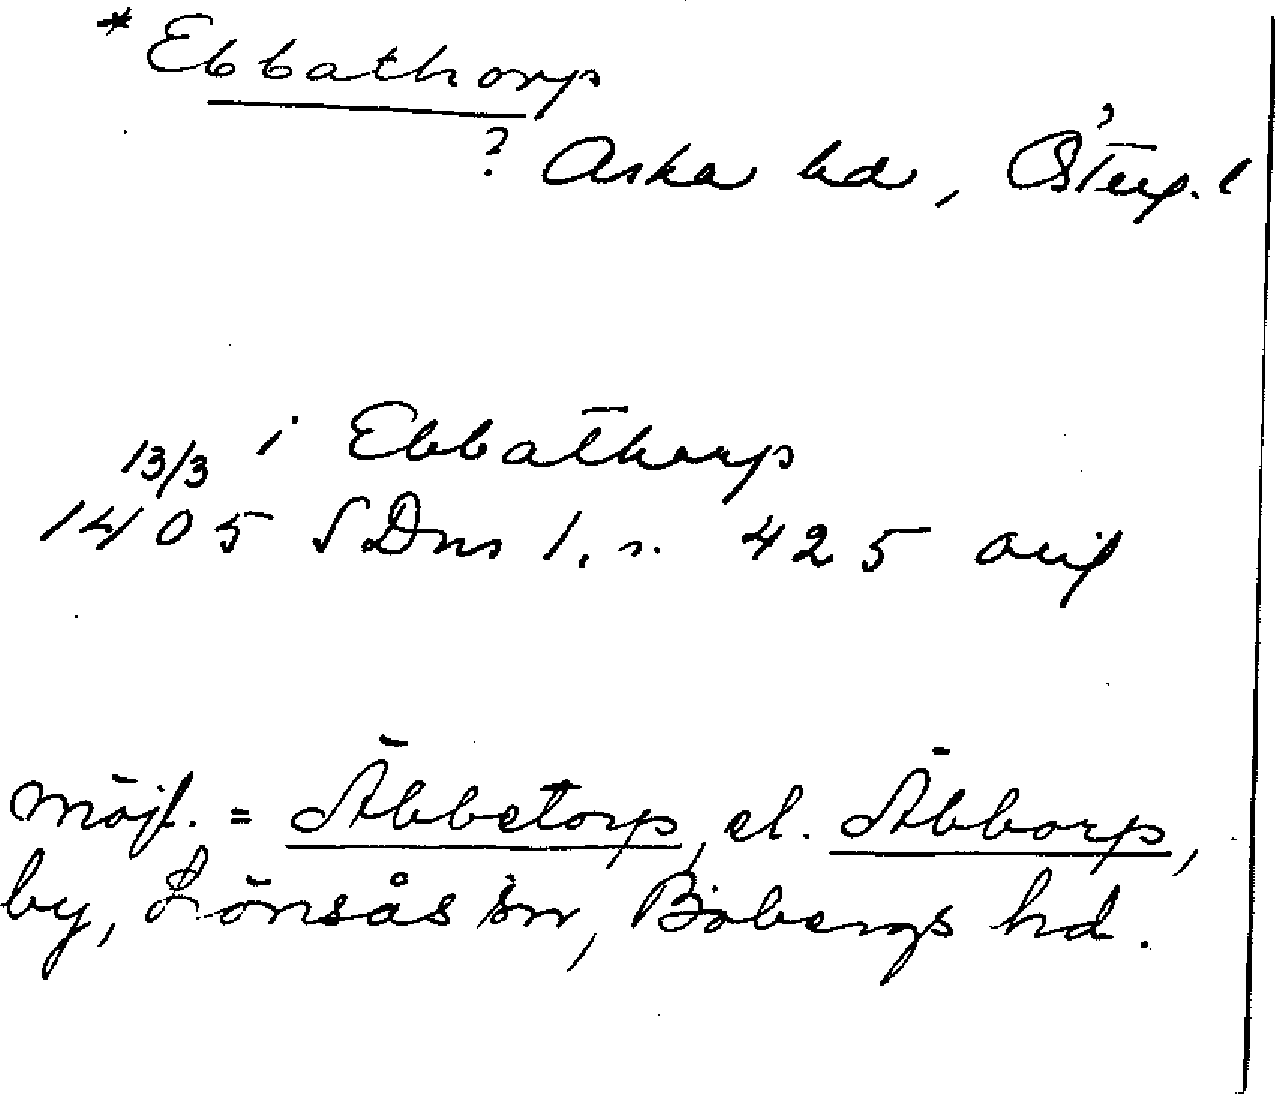 *Ebbathorp
? Aska hd, Österg. l
i Ebbathorp
13/3
1405 SDns 1, s. 425 avskr
Möjl. = Äbbetorp, el. Äbborp,
by, Lönsås sn, Bobergs hd.